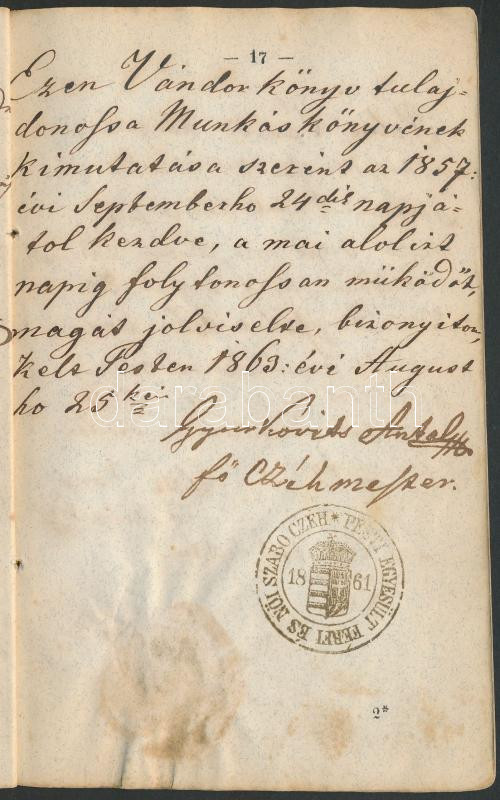 — 17 —
Ezen Vándor könyv tulaj-
donossa Munkás könyvének
kimutatása szerént az 1857:
évi Septemberho 24dik napjá-
tol kezdve, a mai alolirt
napig folytonossan müködöt,
magát jolviselte, bizonyitom,
Kelt Pesten 1863: évi August
ho 25kéi
Gyurkovits Antal
fö Czéhmester.
PESTI EGYESÜLT FÉRFI ÉS NÖI SZABO CZEH *
18 61
2*
darabanth